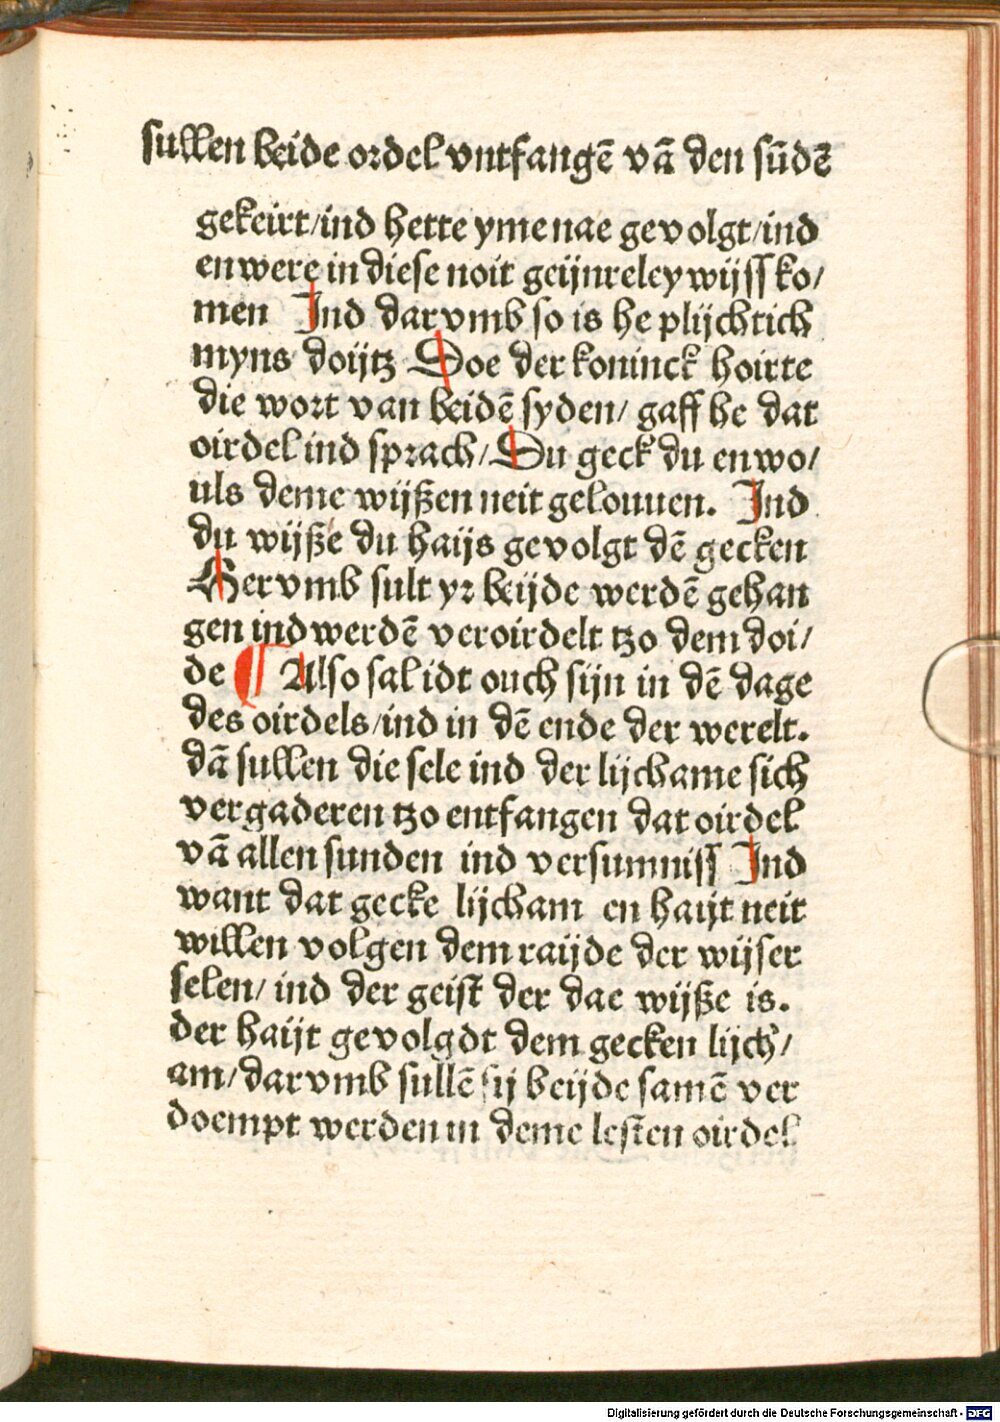 sullen beide ordel vntfangē vā den sūdē
gekeirt/ind hette yme nae gevolgt/ind
en were in diese noit geijnreley wijss ko/
men Ind darvmb so is he plijchtich
myns doijtz Doe der koninck hoirte
die wort van beidē syden/ gaff he dat
oirdel ind sprach/Du geck du en wo/
uls deme wijßen neit gelouuen. Ind
du wijße du haijs gevolgt dē gecken
Hervmb sult yr beijde werdē gehan
gen ind werdē veroirdelt tzo dem doi/
de ¶ Also sal idt ouch sijn in dē dage
des oirdels/ind in dē ende der werelt.
dā sullen die sele ind der lijchame sich
vergaderen tzo entfangen dat oirdel
vā allen sunden ind versumniss Ind
want dat gecke lijcham en haijt neit
willen volgen dem raijde der wijser
selen/ ind der geist der dae wijße is.
der haijt gevolgdt dem gecken lijch/
am/darvmb sullē sij beijde samē ver
doempt werden in deme lesten oirdel
Digitalisierung gefördert durch die Deutsche Forschungsgemeinschaft - DFG